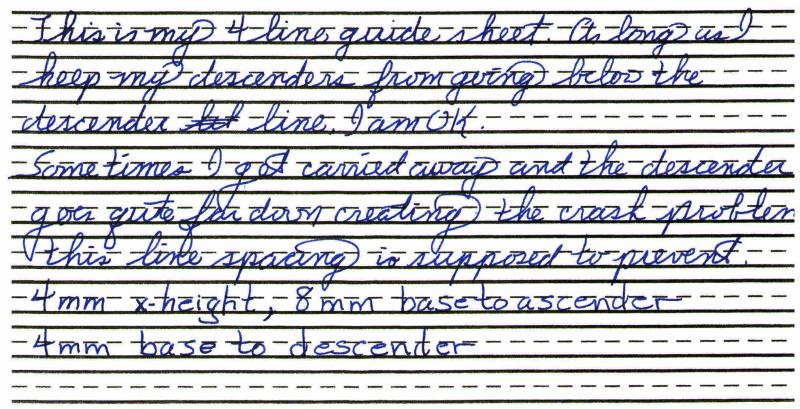 This is my 4 line guide sheet. As long as I
keep my descenders from going below the
descender line, I am OK.
Sometimes I got carried away and the descender
goes quite far down creating the crash problem
this line spacing is supposed to prevent.
4mm x-height, 8mm base to ascender
4mm base to descender